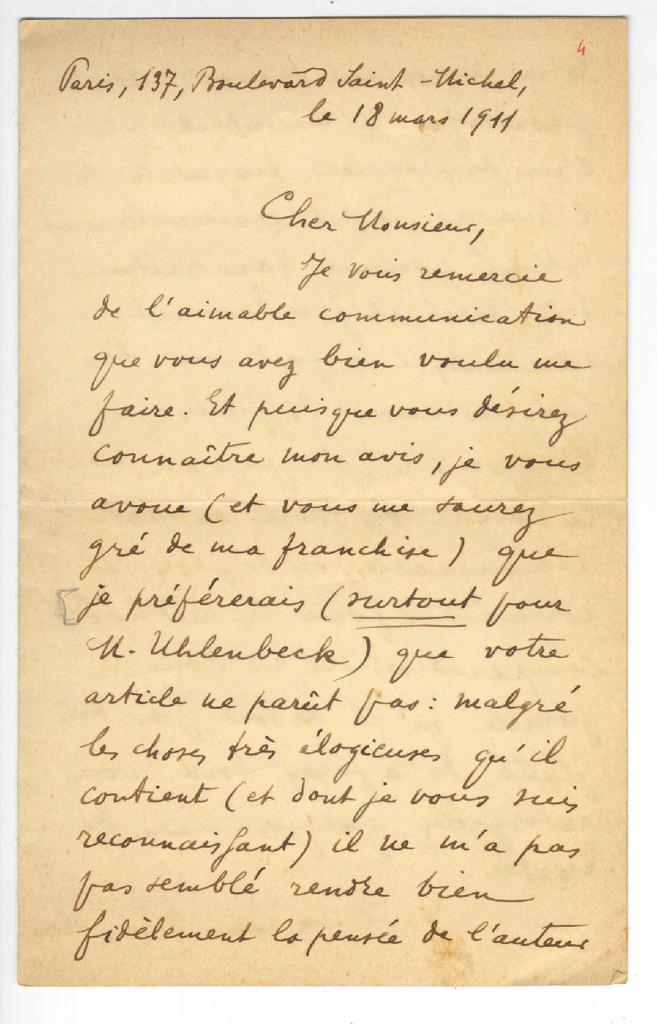 4
Paris, 137, Boulevard Saint-Michel,
le 18 mars 1911
Cher Monsieur,
Je vous remercie
de l'aimable communication
que vous avez bien voulu me
faire. Et puisque vous désirez
connaître mon avis, je vous
avoue (et vous me saurez
gré de ma franchise) que
je préférerais (surtout pour
M. Uhlenbeck) que votre
article ne parût pas: malgré
les choses très élogieuses qu'il
contient (et dont je vous suis
reconnaissant) il ne m'a pas
pas semblé rendre bien
fidèlement la pensée de l'auteur